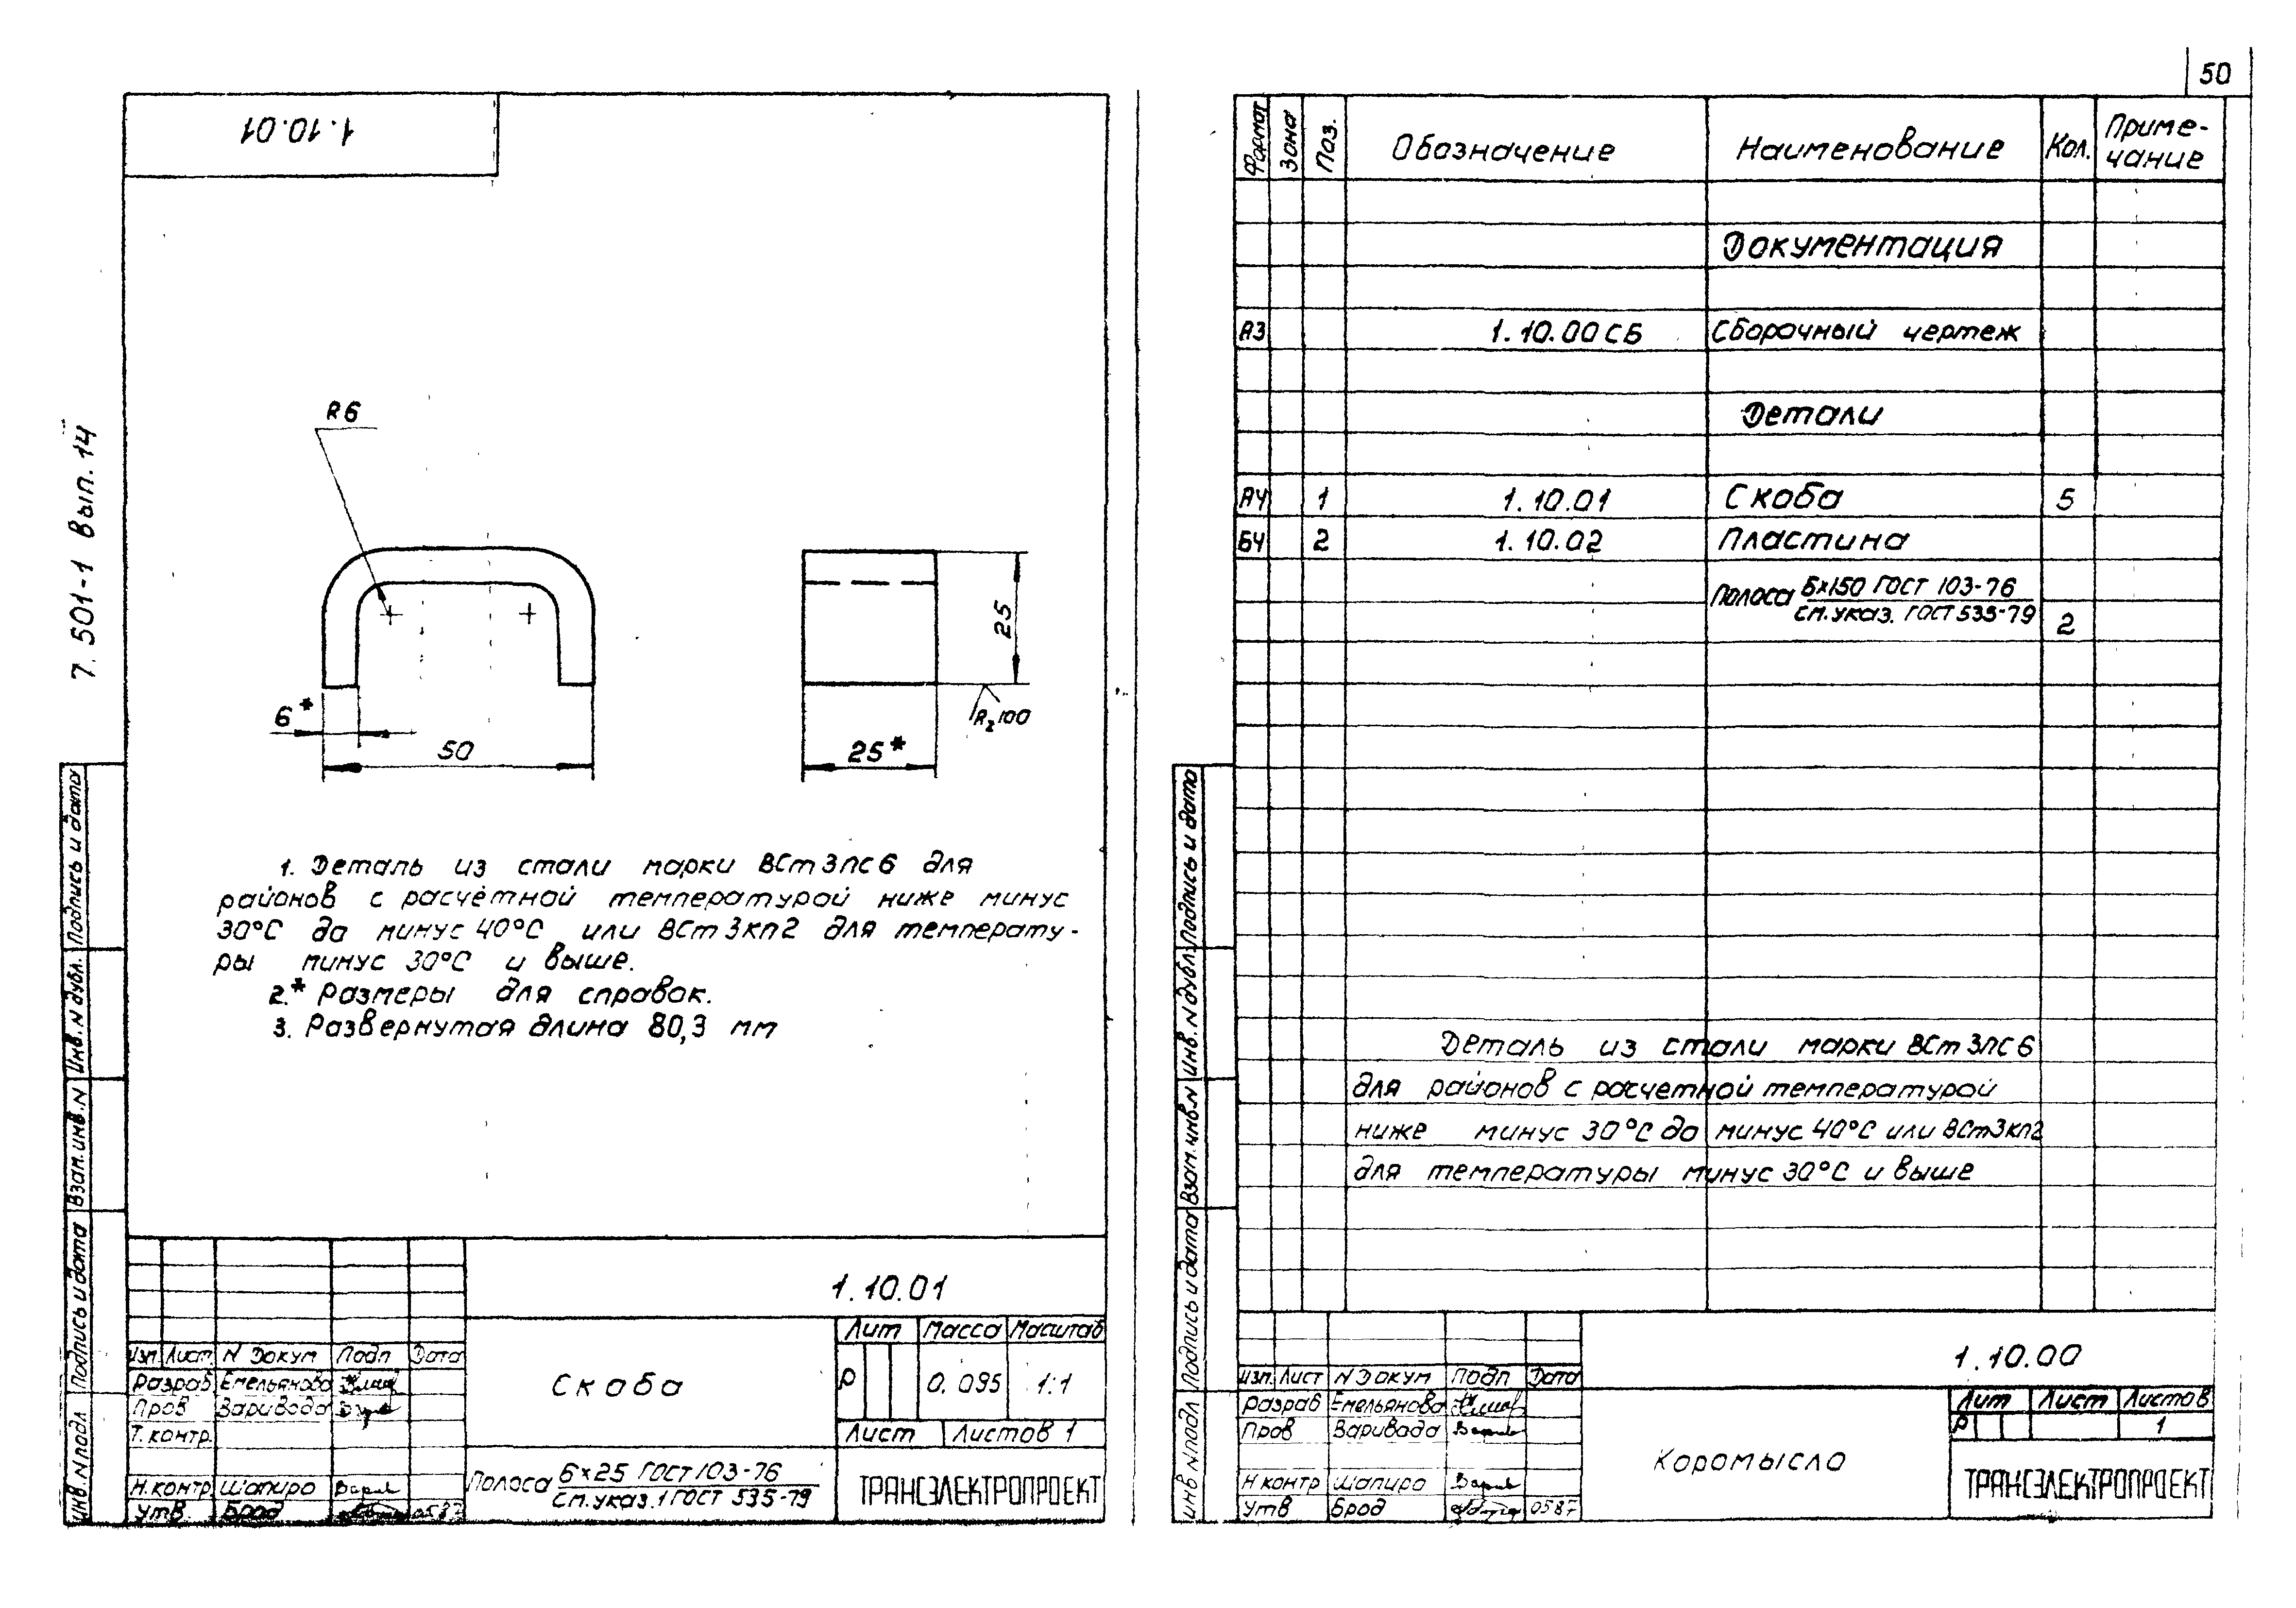 50
1.10.01
7.501-1 Вып. 14
R6
6*
50
25
Rz100
25*
1. Деталь из стали марки ВСт3пс6 для
районов с расчётной температурой ниже минус
30°С до минус 40°С или ВСт3кп2 для температу-
ры минус 30°С и выше.
2.* Размеры для справок.
3. Развернутая длина 80,3 мм
Подпись и дата
Инв. N дубл.
Взам. инв. N
Подпись и дата
Инв. N подл
1.10.01
Изм. Лист N докум Подп Дата
Разраб Емельянова
Пров Варивода
Т. контр.
Н. контр Шапиро
Утв. Брод 0587
Скоба
Лит Масса Масштаб
Р 0,095 1:1
Лист Листов 1
Полоса 6×25 ГОСТ 103-76
См. указ. 1 ГОСТ 535-79
ТРАНСЭЛЕКТРОПРОЕКТ
Формат Зона Поз. Обозначение Наименование Кол. Приме-
чание
Документация
А3 1.10.00 СБ Сборочный чертеж
Детали
А4 1 1.10.01 Скоба 5
БЧ 2 1.10.02 Пластина
Полоса 6×150 ГОСТ 103-76
см. указ. ГОСТ 535-79 2
Деталь из стали марки ВСт3пс6
для районов с расчетной температурой
ниже минус 30°С до минус 40°С или ВСт3кп2
для температуры минус 30°С и выше
Подпись и дата
Инв. N дубл.
Взам. инв. N
Подпись и дата
Инв N подл
1.10.00
Изм. Лист N докум Подп Дата
Разраб Емельянова
Пров Варивада
Н контр Шапиро
Утв Брод 0587
Коромысло
Лит Лист Листов
Р 1
ТРАНСЭЛЕКТРОПРОЕКТ